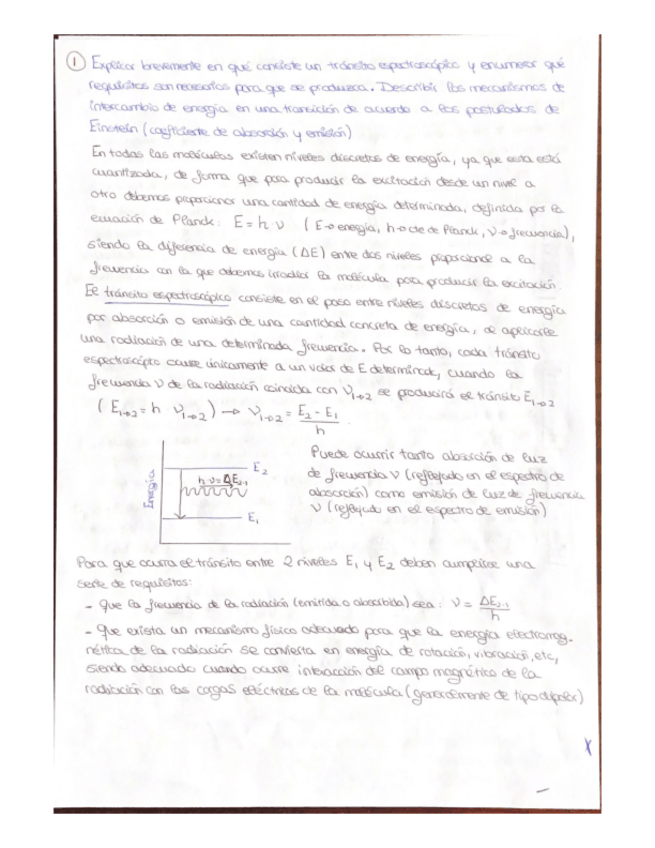 ① Explicar brevemente en qué consiste un tránsito espectroscópico y enumerar qué
requisitos son necesarios para que se produzca. Describir los mecanismos de
intercambio de energía en una transición de acuerdo a los postulados de
Einstein (coeficiente de absorción y emisión)
En todas las moléculas existen niveles discretos de energía, ya que esta está
cuantizada, de forma que para producir la excitación desde un nivel a
otro debemos proporcionar una cantidad de energía determinada, definida por la
ecuación de Planck: E = h·ν (E→energía, h→cte de Planck, ν→frecuencia),
siendo la diferencia de energía (ΔE) entre dos niveles proporcional a la
frecuencia con la que debemos irradiar la molécula para producir la excitación.
El tránsito espectroscópico consiste en el paso entre niveles discretos de energía
por absorción o emisión de una cantidad concreta de energía, al aplicarle
una radiación de una determinada frecuencia. Por lo tanto, cada tránsito
espectroscópico ocurre únicamente a un valor de E determinado, cuando la
frecuencia ν de la radiación coincida con ν1→2 se producirá el tránsito E1→2
(E1→2 = h ν1→2) → ν1→2 = E2 - E1 / h
Puede ocurrir tanto absorción de luz
de frecuencia ν (reflejado en el espectro de
absorción) como emisión de luz de frecuencia
ν (reflejado en el espectro de emisión)
Energía
E2
h·ν = ΔE2-1
E1
Para que ocurra el tránsito entre 2 niveles E1 y E2 deben cumplirse una
serie de requisitos:
- Que la frecuencia de la radiación (emitida o absorbida) sea: ν = ΔE2-1 / h
- Que exista un mecanismo físico adecuado para que la energía electromag-
nética de la radiación se convierta en energía de rotación, vibración, etc,
siendo adecuado cuando ocurre interacción del campo magnético de la
radiación con las cargas eléctricas de la molécula (generalmente de tipo dipolar)